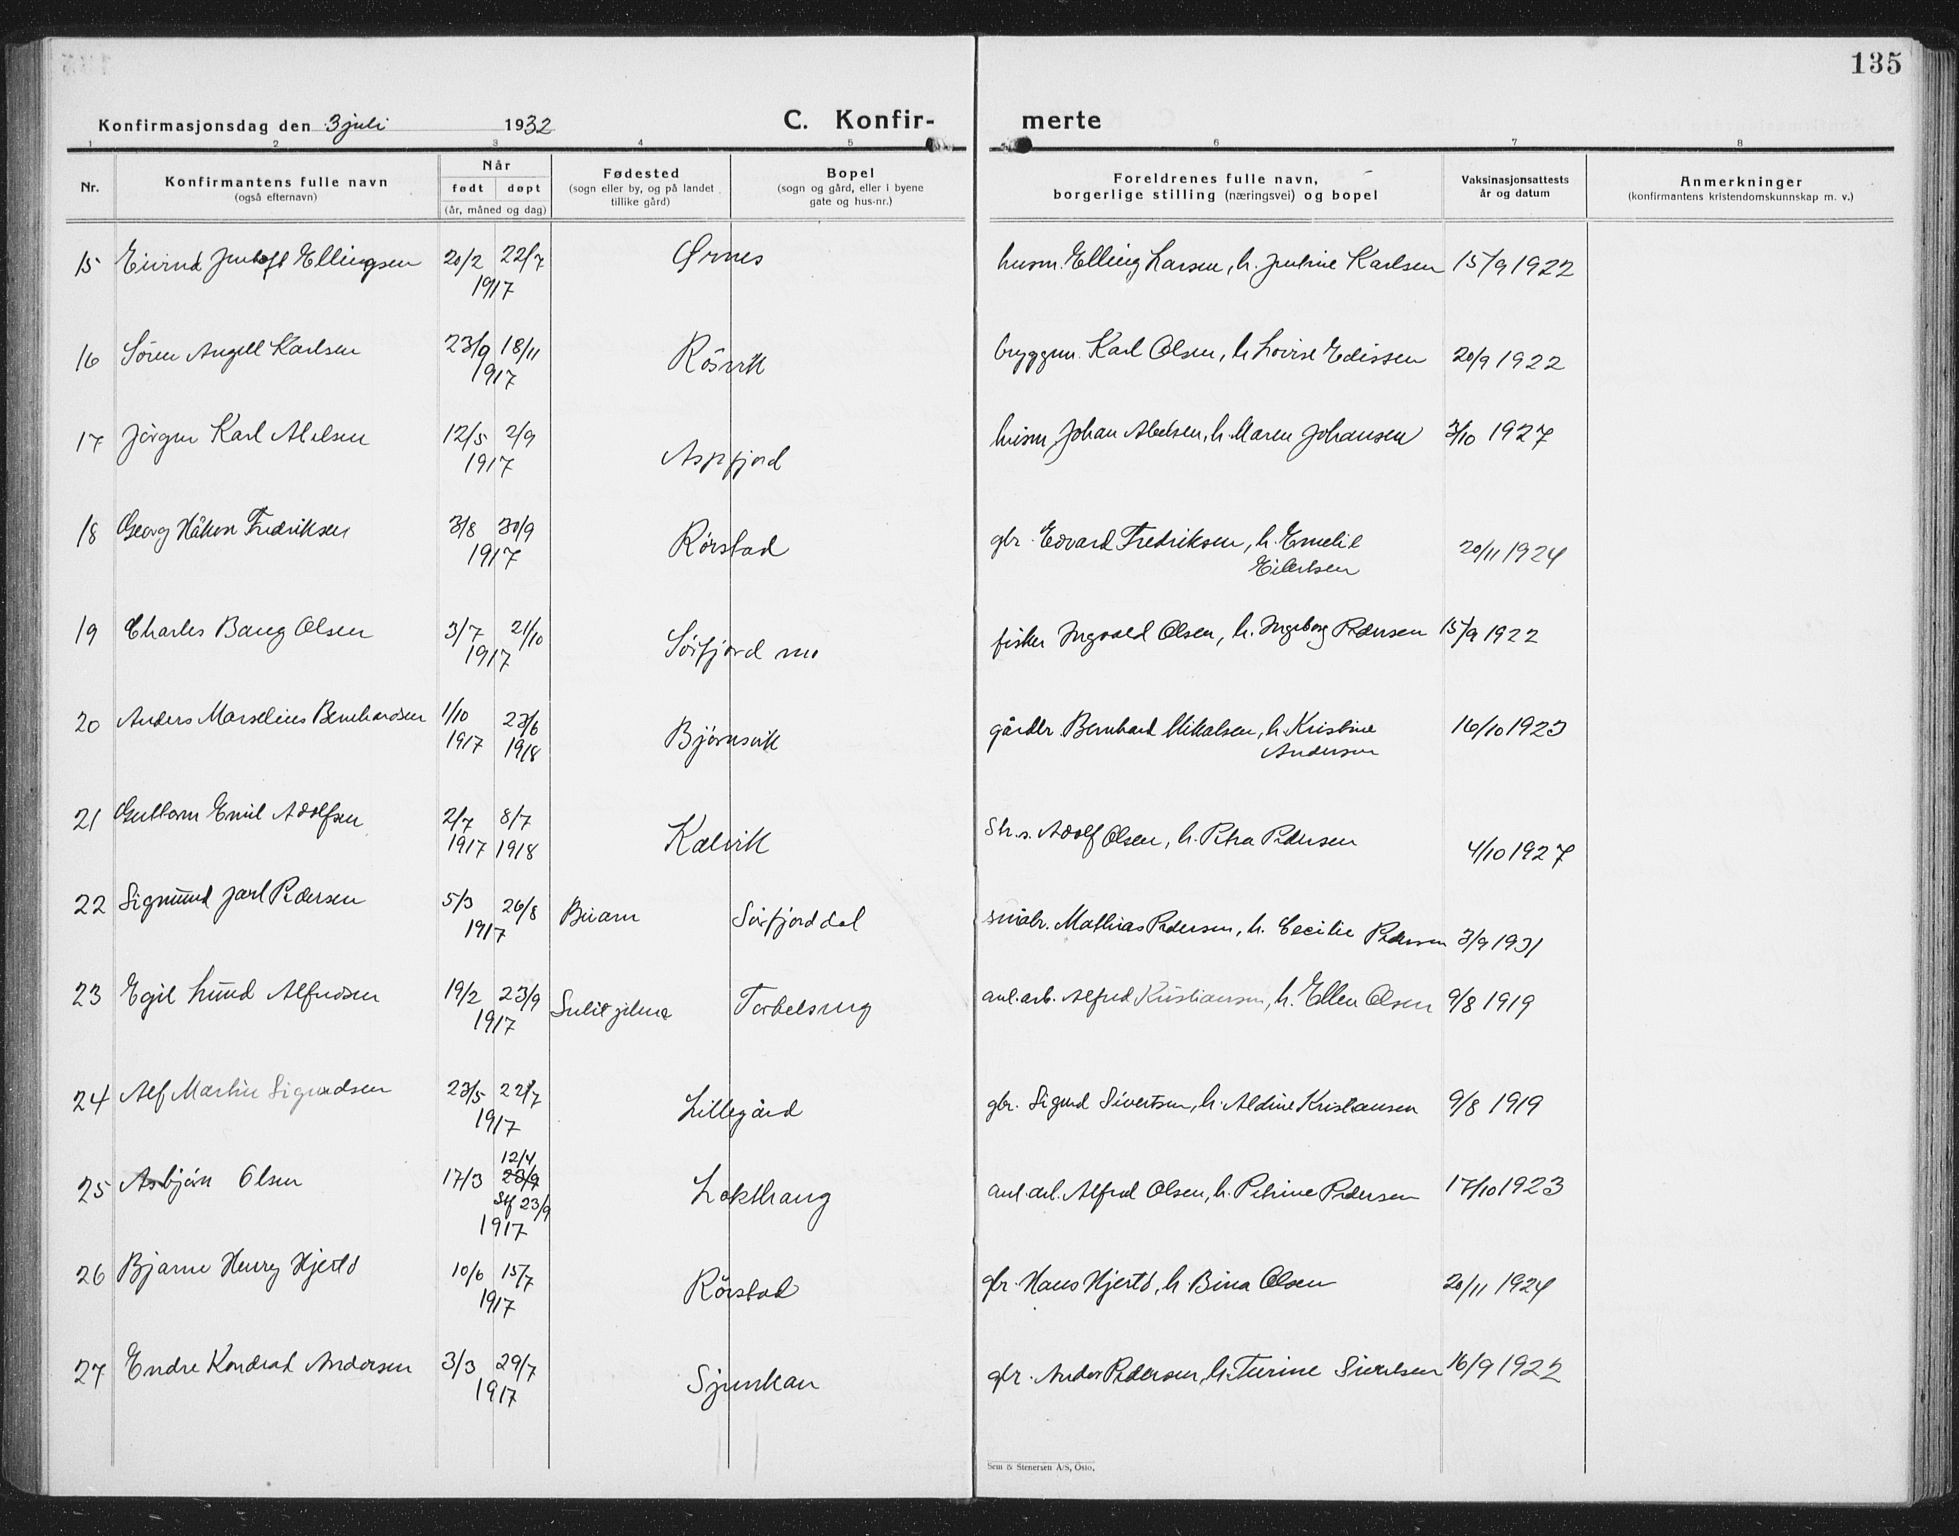 135
Konfirmasjonsdag den 3 juli 1932 C. Konfir- merte
1 2 3 4 5 6 7 8
Nr. Konfirmantens fulle navn (også efternavn) Når født døpt (år, måned og dag) Fødested (sogn eller by, og på landet tillike gård) Bopel (sogn og gård, eller i byene gate og hus-nr.) Foreldrenes fulle navn, borgerlige stilling (næringsvei) og bopel Vaksinasjonsattests år og datum Anmerkninger (konfirmantens kristendomskunnskap m. v.)
15 Eivind Jentoft Ellingsen 20/2 22/7 1917 Ørnes husm. Elling Larsen, h. Karlsen 15/9 1922
16 Sören Angell Karlsen 23/9 18/11 1917 Rösvik byggm. Karl Olsen, h. Lovise Edissen 20/9 1922
17 Jörgen Karl Abelsen 12/5 2/9 1917 Aspfjord husm. Johan Abelsen, h. Maren Johansen 3/10 1927
18 Georg Håkon Fredriksen 3/8 30/9 1917 Rörstad gbr. Edvard Fredriksen, h. Emelie
Eilertsen 20/11 1924
19 Charles Bang Olsen 3/7 21/10 1917 Sörfjord fisker Ingvald Olsen, h. Ingeborg Pedersen 15/9 1922
20 Anders Marselius Bernhardsen 1/10 1917 23/6 1918 Björnsvik gårdbr. Bernhard Mikalsen, h. Kristine
Andersen 16/10 1923
21 Guttorm Emil Adolfsen 2/7 1917 8/7 1918 Kalvik Adolf Olsen, h. Petra Pedersen 4/10 1927
22 Sigmund Jarl Pedersen 5/3 26/8 1917 Sörfjorddal småbr. Mathias Pedersen, h. Cecilie Pedersen 3/9 1931
23 Egil Lund Alfredsen 19/2 23/9 1917 Sulitjelma anl.arb. Alfred Kristiansen, h. Ellen Olsen 9/8 1919
24 Alf Martin Sigurdsen 23/5 22/7 1917 Lillegård gbr. Sigurd Sivertsen, h. Aldine Kristiansen 9/8 1919
25 Asbjörn Olsen 17/3 12/4 23/9 Stf 23/9 1917 anl.arb. Alfred Olsen, h. Petrine Pedersen 17/10 1923
26 Bjarne Henry Hjertö 10/6 15/7 1917 Rörstad gbr. Hans Hjertö, h. Bina Olsen 20/11 1924
27 Endre Kondrad Andersen 3/3 29/7 1917 Sjunkan gbr. Anders Pedersen, h. Turine Sivertsen 16/9 1922
Sem & Stenersen A/S, Oslo.